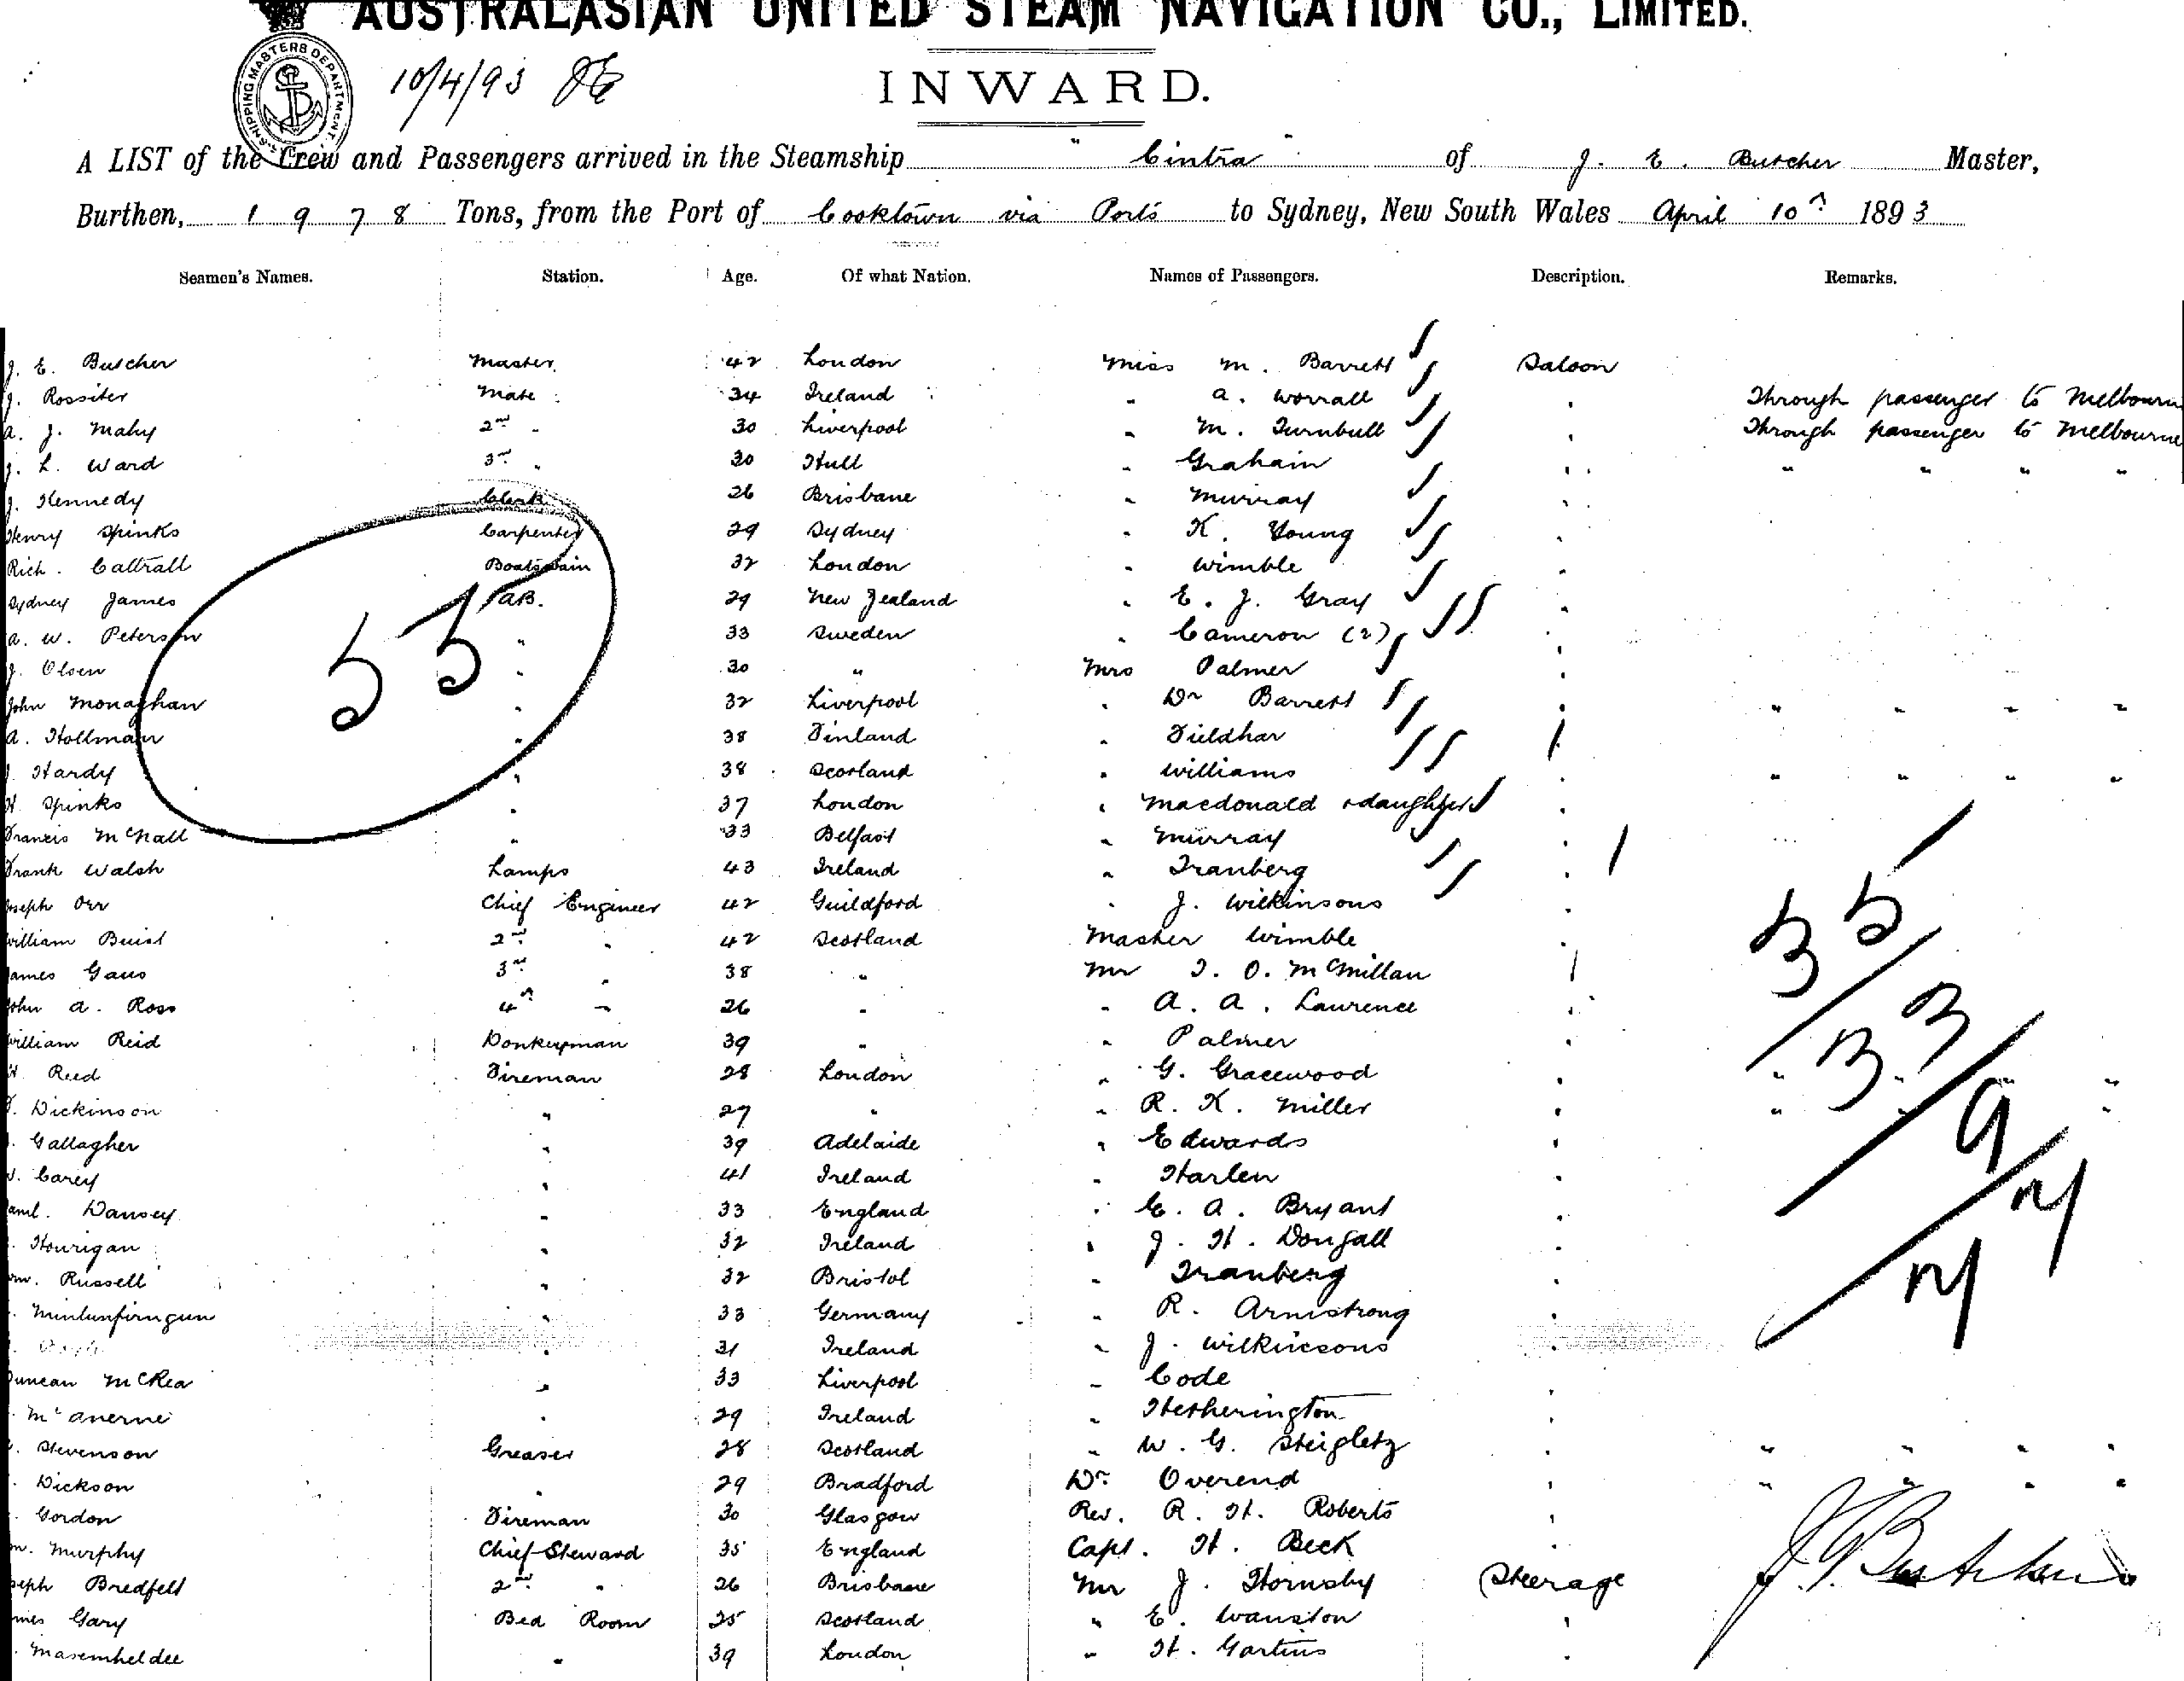 AUSTRALASIAN UNITED STEAM NAVIGATION CO., LIMITED.
SHIPPING MASTERS DEPARTMENT.
10/4/93
INWARD.
A LIST of the Crew and Passengers arrived in the Steamship "Cintra" of J. E. Butcher Master,
Burthen, 1978 Tons, from the Port of Cooktown via Ports to Sydney, New South Wales April 10th 1893
Seamen's Names. Station. Age. Of what Nation. Names of Passengers. Description. Remarks.
J. E. Butcher Master 42 London Miss M. Barrett Saloon
J. Rossiter Mate 34 Ireland " A. Worrall " Through passenger to Melbourne
A. J. Mahy 2nd " 30 Liverpool " M. Turnbull " Through passenger to Melbourne
J. L. Ward 3rd " 30 Hull " Graham " " " " "
J. Kennedy Clerk 26 Brisbane " Murray "
Henry Spinks Carpenter 29 Sydney " K. Young "
Rich. Cattrall Boatswain 32 London " Wimble "
Sydney James AB. 29 New Zealand " E. J. Gray "
A. W. Peterson " 33 Sweden " Cameron (2) "
J. Olsen " 30 " Mrs Palmer "
John Monaghan " 32 Liverpool " Dr Barrett " " " " "
A. Hollman " 38 Finland " Fieldhar "
Hardy " 38 Scotland " Williams " " " " "
H. Spinks " 37 London " Macdonald + daughter "
Francis McNall " 33 Belfast " Murray "
Frank Walsh Lamps 43 Ireland " Tranberg "
Joseph Orr Chief Engineer 42 Guildford " J. Wilkinsons "
William Buist 2nd " 42 Scotland Master Wimble "
James Gaus 3rd " 38 " Mr J. O. McMillan
John A. Ross 4th " 26 " " A. A. Laurence "
William Reid Donkeyman 39 " " Palmer "
H. Reed Fireman 28 London " G. Gracewood " " " " "
Dickinson " 27 " " R. K. Miller " " " " "
Gallagher " 39 Adelaide " Edwards "
Carey " 41 Ireland " Harlen "
Saml. Dansey " 33 England " E. A. Bryant "
Hourigan " 32 Ireland " J. H. Dougall "
Wm. Russell " 32 Bristol " Tranberg "
" 33 Germany " R. Armstrong "
" 31 Ireland " J. Wilkinsons "
Duncan McRea " 33 Liverpool " Code "
McAnerne " 29 Ireland " Hetherington "
Stevenson Greaser 28 Scotland " W. G. Steigletz " " " " "
Dickson " 29 Bradford Dr Overend " " " " "
Gordon Fireman 30 Glasgow Rev. R. H. Roberts "
M. Murphy Chief Steward 35 England Capt. H. Beck "
Joseph Bredfelt 2nd " 26 Brisbane Mr J. Hornsby Steerage
James Gary Bed Room 25 Scotland " E. Wanston "
Masemheldee " 39 London " H. Gartins "
55
35
33
9
J. E. Butcher